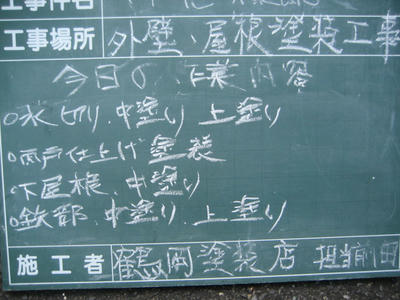 工事件名
工事場所 外壁、屋根塗装工事
今日の作業内容
○水切り、中塗り 上塗り
○雨戸仕上げ塗装
○下屋根、中塗り
○鉄部、中塗り、上塗り
施工者 鶴岡塗装店 担当前田